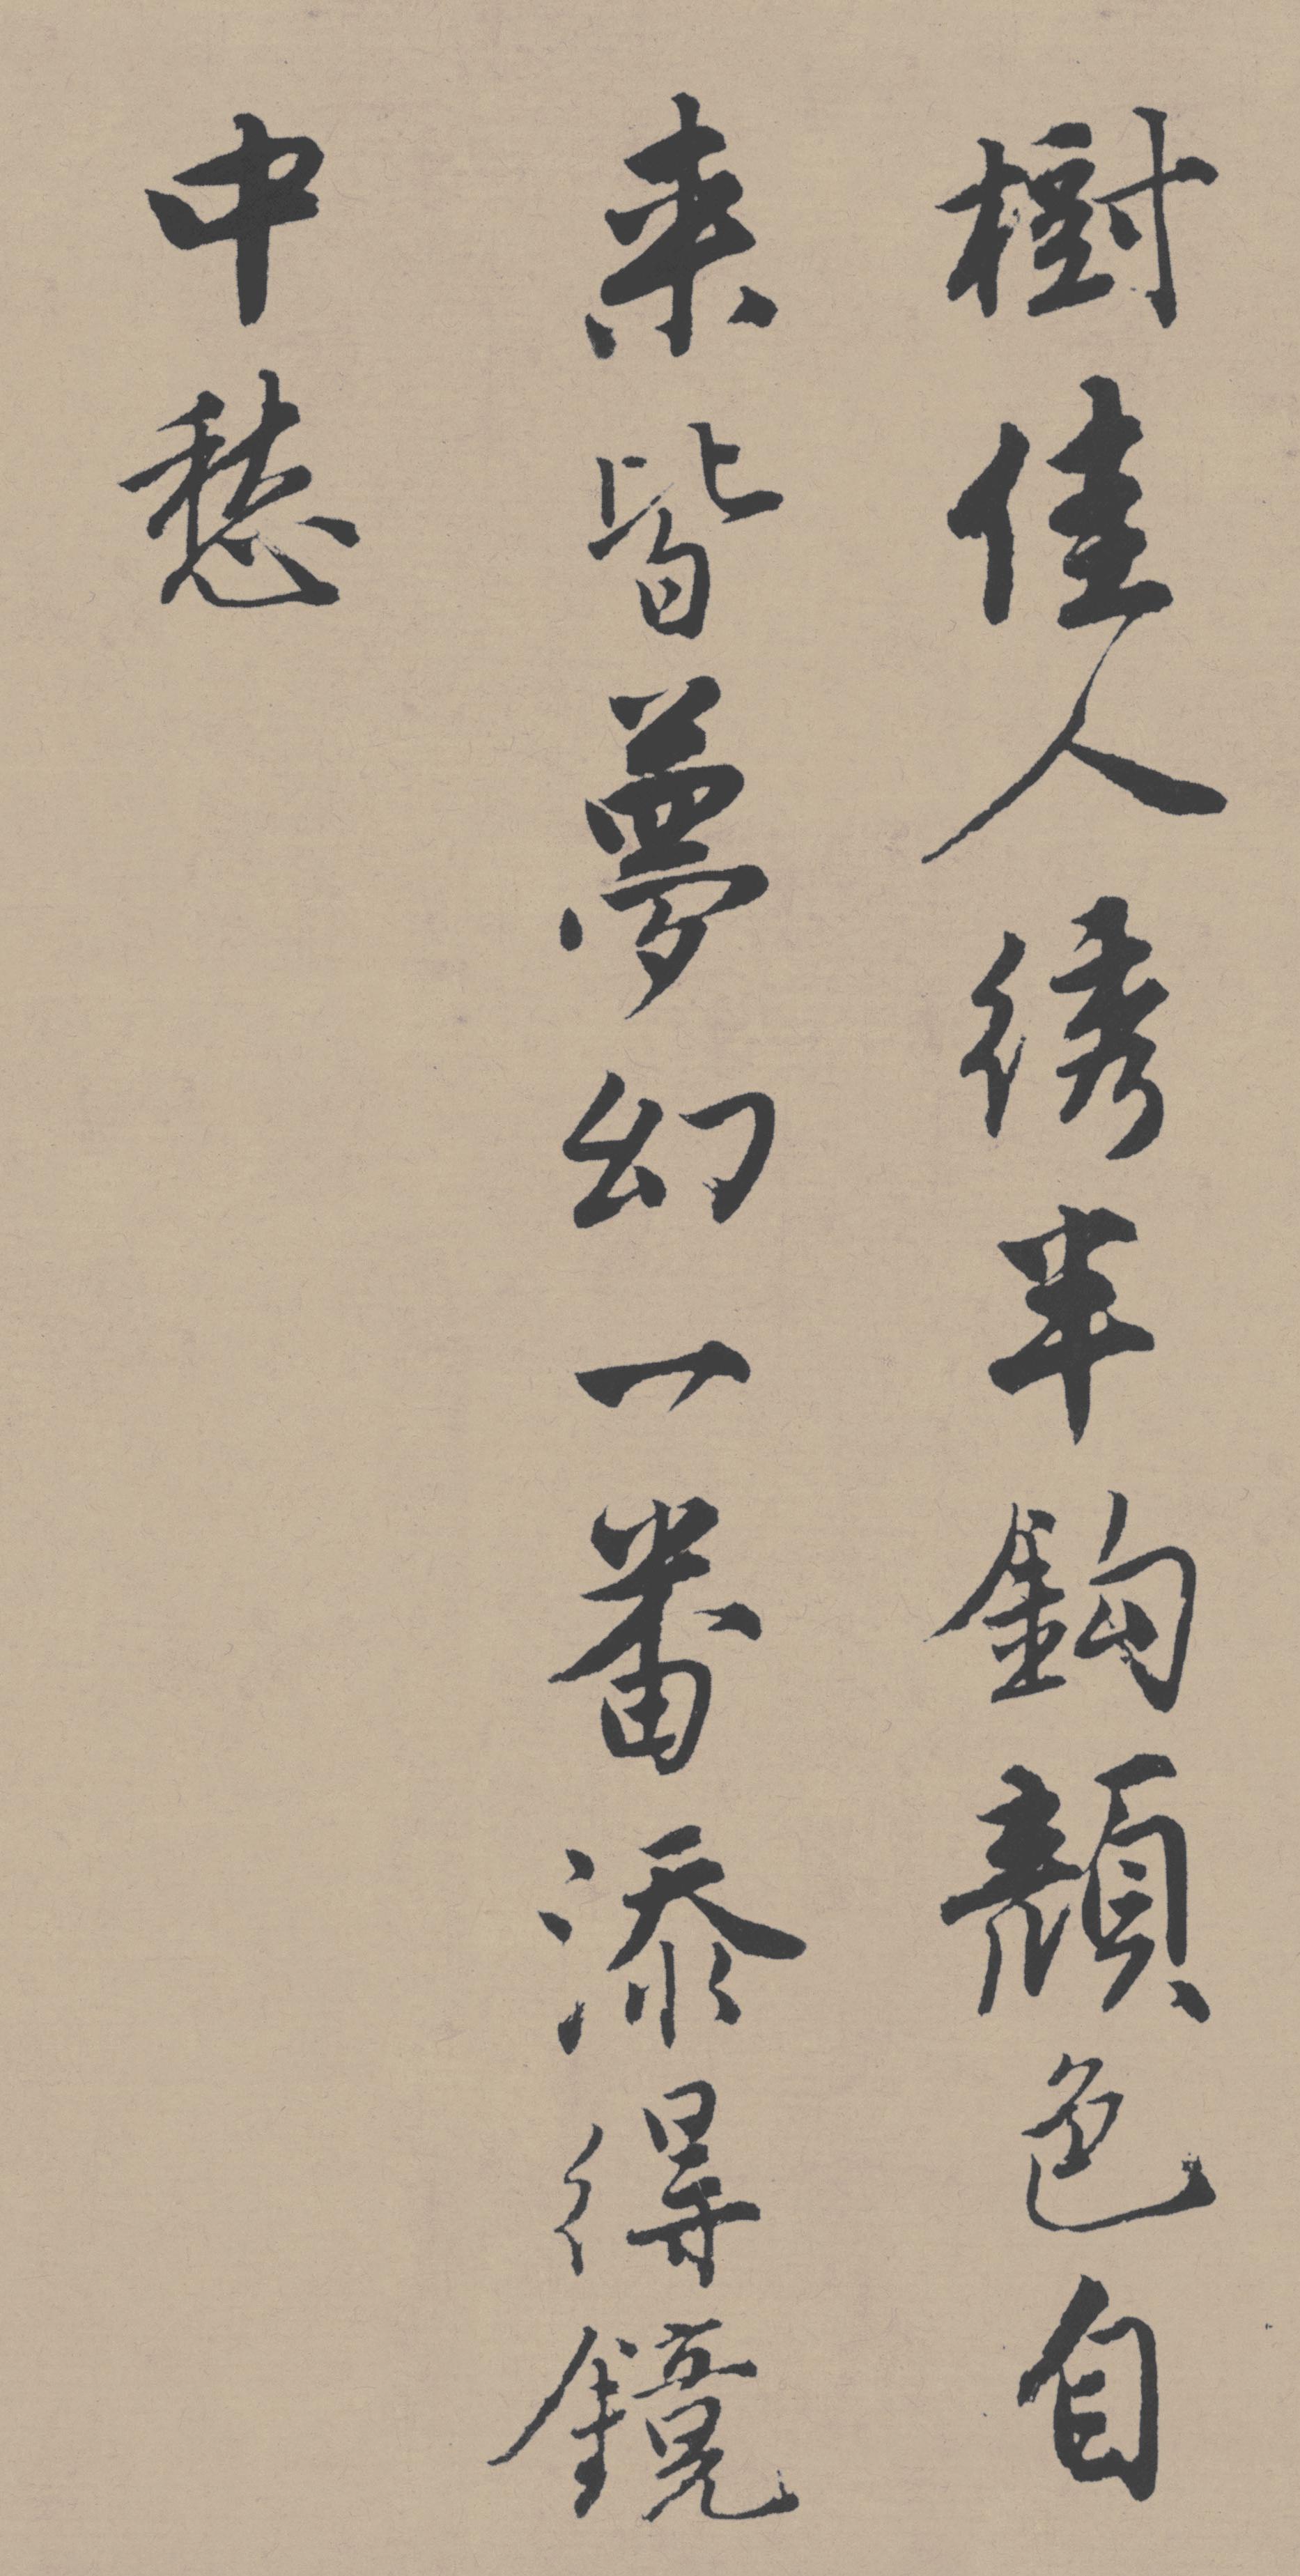 樹佳人綉半鈎顏色自
来皆夢幻一番添得鏡
中愁